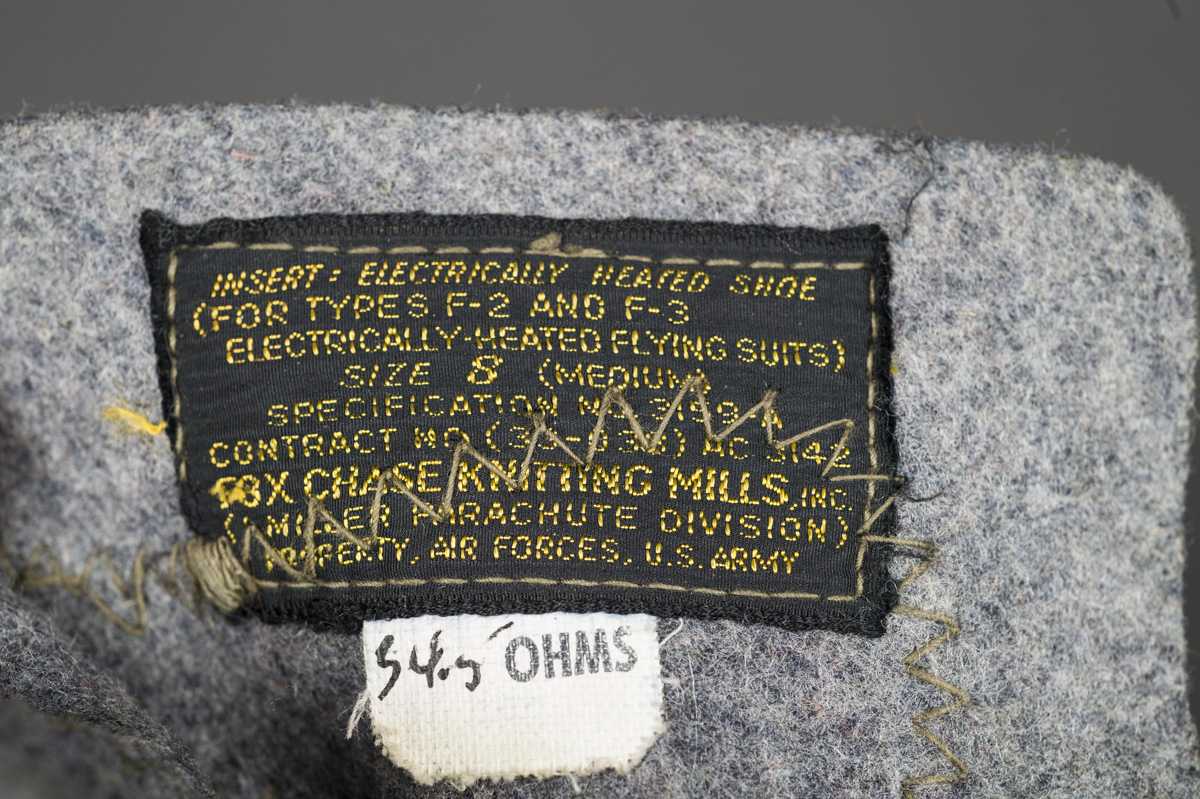 INSERT: ELECTRICALLY HEATED SHOE
(FOR TYPES F-2 AND F-3
ELECTRICALLY-HEATED FLYING SUITS)
SIZE 8 (MEDIUM)
SPECIFICATION NO. A
CONTRACT NO. AC
FOX CHASE KNITTING MILLS, INC.
(MILLER PARACHUTE DIVISION)
PROPERTY, AIR FORCES, U.S. ARMY
54.5 OHMS